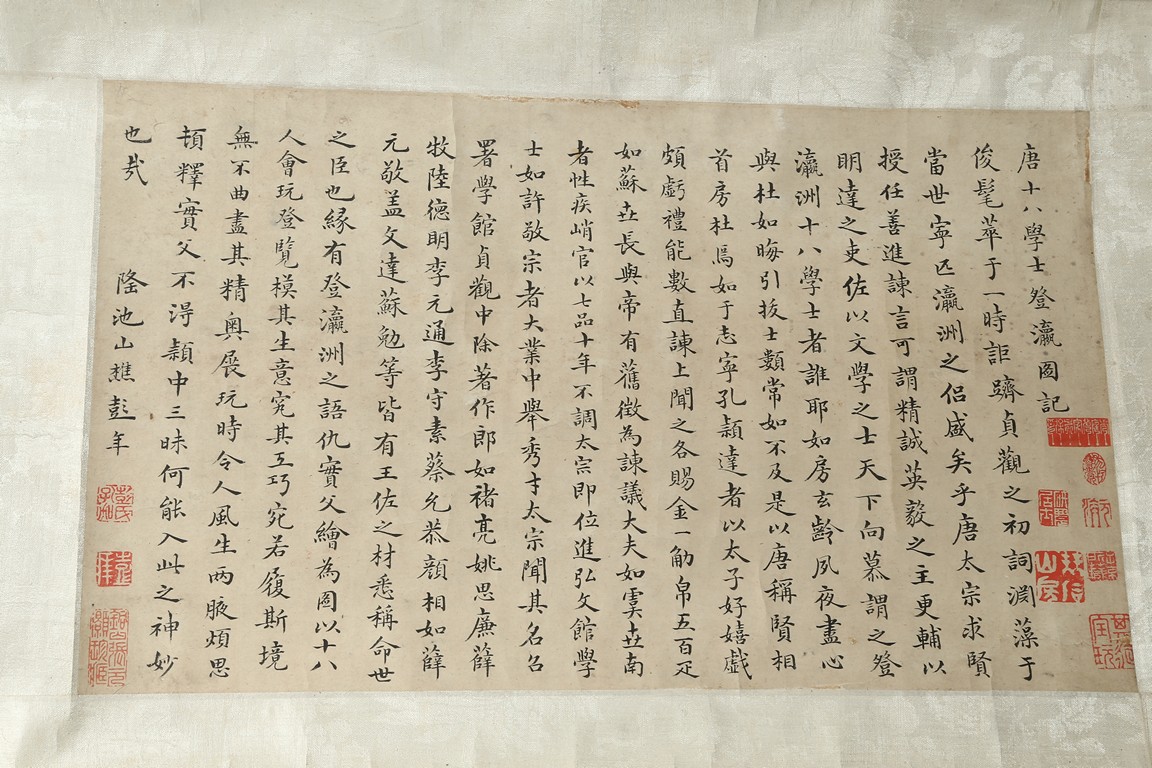 唐十八學士登瀛圖記
俊髦萃于一時詎躋貞觀之初詞淵藻于
當世寧匹瀛洲之侣盛矣乎唐太宗求賢
授任善進諫言可謂精誠英毅之主更輔以
明達之吏佐以文學之士天下向慕謂之登
瀛洲十八學士者誰耶如房玄齡夙夜盡心
與杜如晦引拔士類常如不及是以唐稱賢相
首房杜焉如于志寧孔頴達者以太子好嬉戲
頗虧禮能數直諫上聞之各賜金一觔帛五百疋
如蘇世長與帝有舊徴為諫議大夫如虞世南
者性疾峭官以七品十年不調太宗即位進弘文館學
士如許敬宗者大業中舉秀才太宗聞其名召
署學館貞觀中除著作郎如褚亮姚思廉薛
牧陸德明李元通李守素蔡允恭顔相如薛
元敬盖文達蘇勉等皆有王佐之材悉稱命世
之臣也緣有登瀛洲之語仇實父繪為圖以十八
人會玩登覽模其生意究其工巧宛若履斯境
無不曲盡其精奥展玩時令人風生两腋煩思
頓釋實父不得頴中三昧何能入此之神妙
也哉
隆池山樵彭年